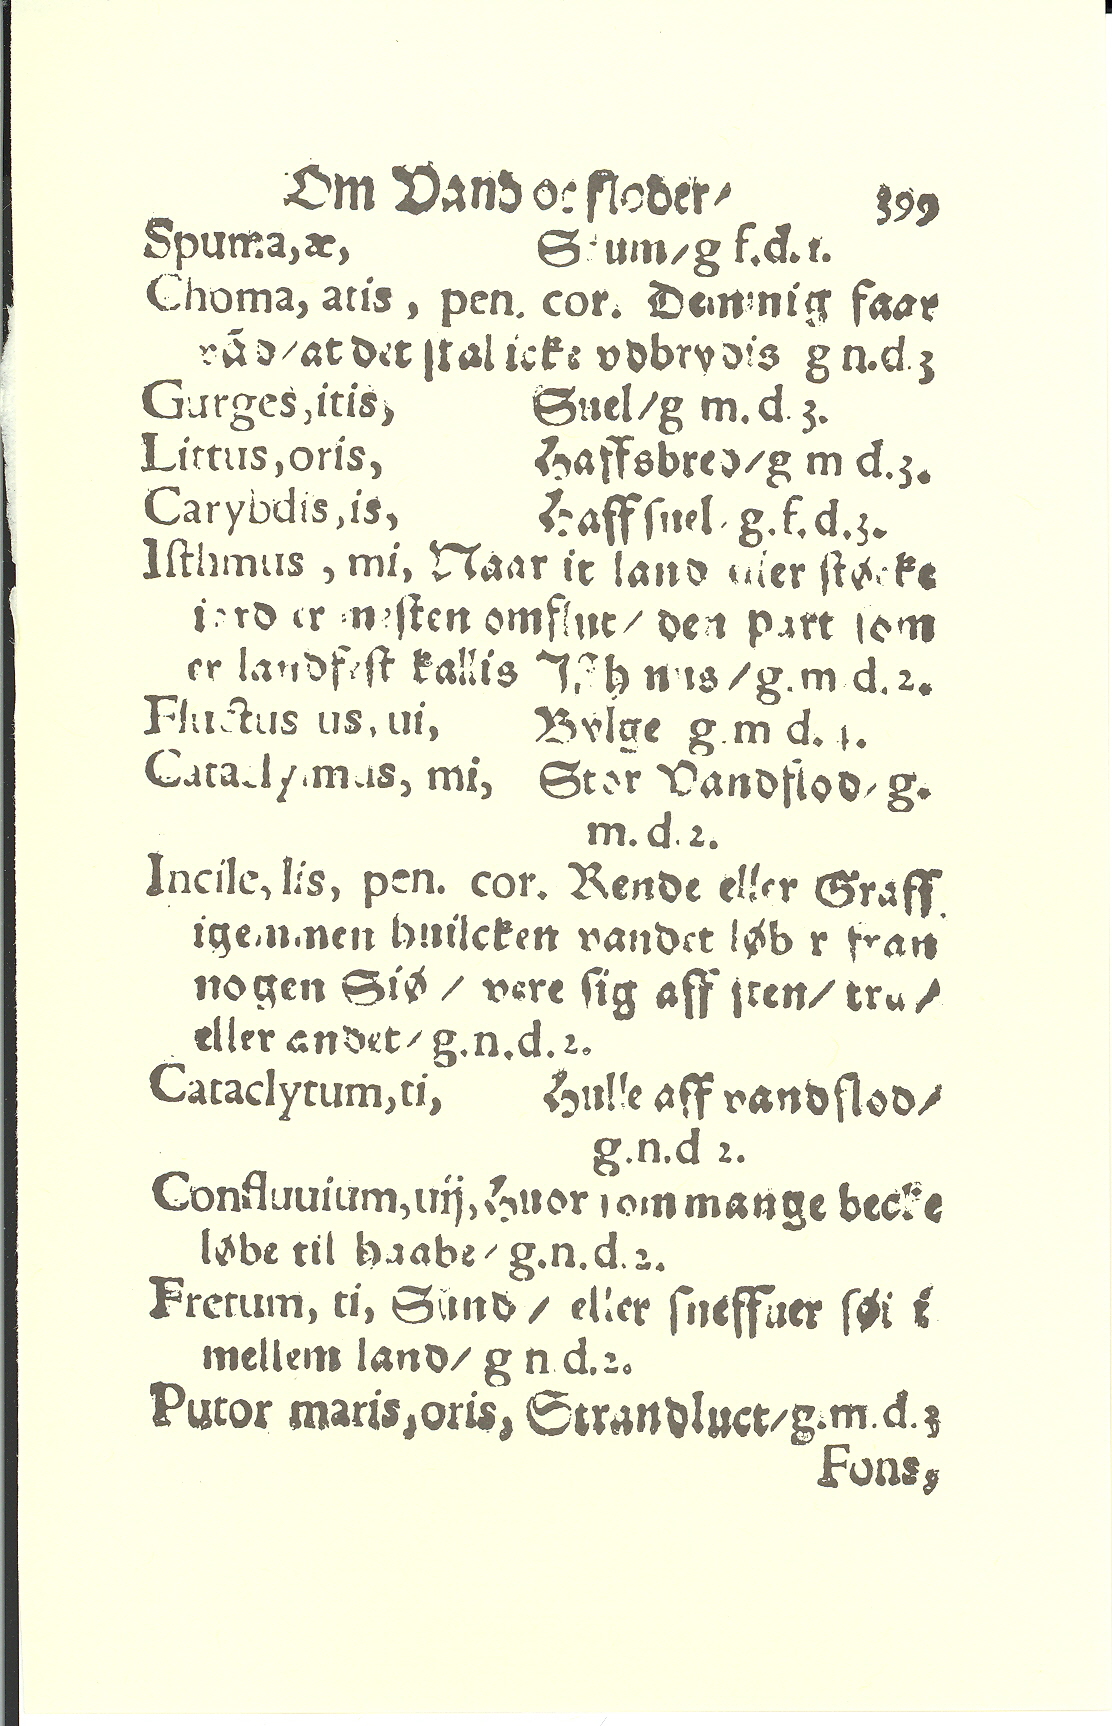 Om Vand oc floder/ 399
Spuma,æ, Skum/g f.d.1.
Choma, atis, pen. cor. Demnig faar
vād/at det skal icke vdbrydis g n.d.3
Gurges,itis, Suel/g m.d.3.
Littus,oris, Haffsbred/g m d.3.
Carybdis,is, Haffsuel/g.f.d.3.
Isthmus, mi, Naar it land eller støcke
iord er nesten omflut/ den part som
er landfest kallis Isthmus/g.m d.2.
Fluctus us, ui, Bylge g.m d. 4.
Cataclysmus, mi, Stor Vandflod/g.
m.d.2.
Incile, lis, pen. cor. Rende eller Graff
igemmen huilcken vandet løber fran
nogen Siø/ vere sig aff sten/ træ/
eller andet/g.n.d.2.
Cataclytum,ti, Hulle aff vandflod/
g.n.d 2.
Confluuium,uij, Huor som mange becke
løbe til haabe/g.n.d.2.
Fretum, ti, Sund/ eller sneffuer søi i
mellem land/ g n d.2.
Putor maris,oris, Strandluct/g.m.d.3
Fons,